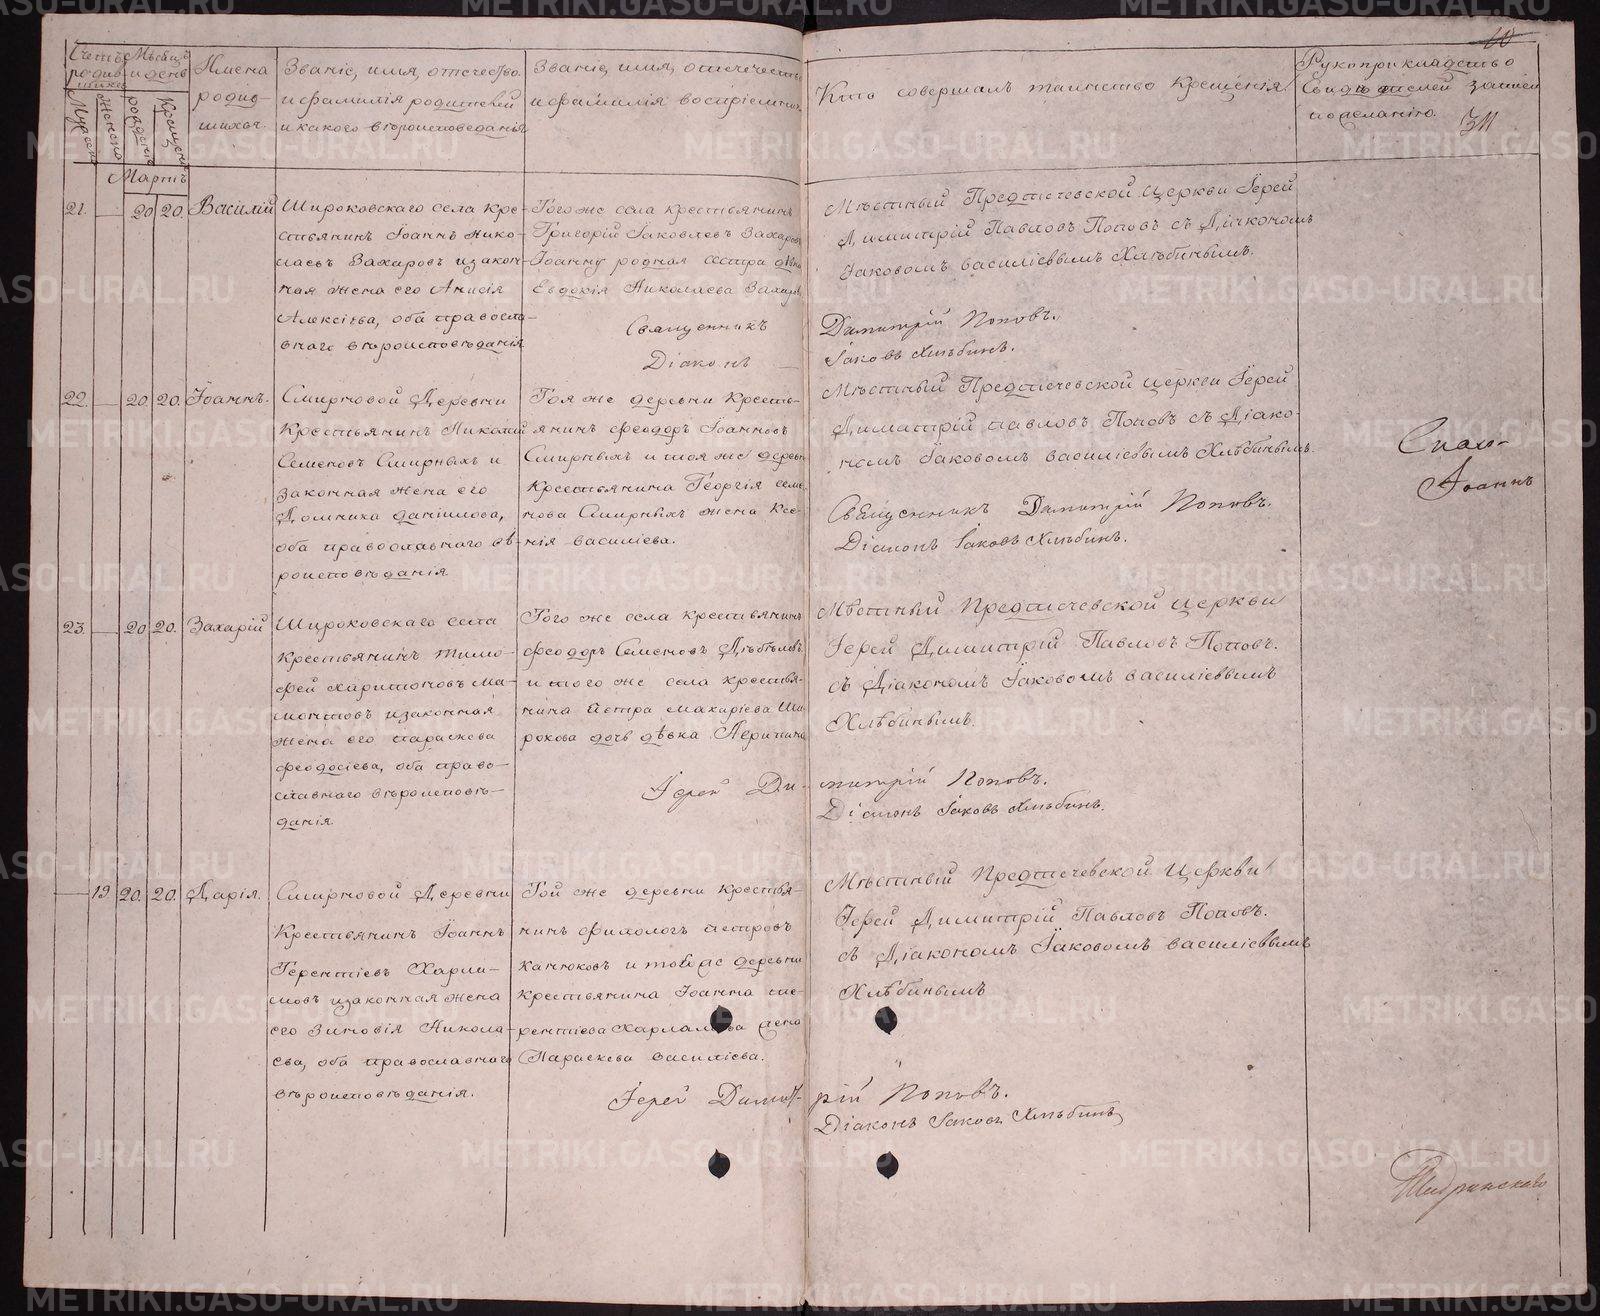 Счетъ родив-
шихся
Мѣсяцъ
и день
Имена
родив-
шихся.
Званіе, имя, отечество.
и фамилія родителей
и какого вѣроисповеданія
Званіе, имя, отечество
и фамилія воспріемник.
Кто совершалъ таинство крещенія.
Рукоприкладство
свидѣтелей записи
по желанію.
Мартъ
21. 20 20. Василій
Широковскаго села кре-
стьянинъ Іоаннъ Нико-
лаевъ Захаровъ и закон-
ная жена его Анисія
Алексіева, оба правосла-
внаго вѣроисповѣданія
Того же села крестьянинъ
Григорій Іаковлевъ Захаров
Іоанну родная сестра дѣвка
Евдокія Николаева Захаров
Мѣстный Предтечевской церкви Іерей
Димитрій Павловъ Поповъ съ Діакономъ
Іаковомъ Василіевымъ Хлѣбинымъ.
Священникъ Димитрій Поповъ.
Діаконъ Іаковъ Хлѣбинъ.
22. 20. 20. Іоаннъ.
Смирновой Деревни
Крестьянинъ Николай
Семеновъ Смирныхъ и
законная жена его
Домника Даніилова,
оба православнаго вѣ-
роисповѣданія.
Тоя же деревни Кресть-
янинъ Феодоръ Іоанновъ
Смирныхъ и тоя же деревни
Крестьянина Георгія семе-
нова Смирныхъ жена Ксе-
нія Василіева.
Мѣстный Предтечевской церкви Іерей
Димитрій Павловъ Поповъ съ Діако-
номъ Іаковомъ Василіевымъ Хлѣбинымъ.
Священникъ Димитрій Поповъ.
Діаконъ Іаковъ Хлѣбинъ.
Іоаннъ
23. 20 20. Захарій
Широковскаго села
крестьянинъ Тимо-
фей Харитоновъ Ма-
монтовъ и законная
жена его Параскева
Феодосіева, оба право-
славнаго вѣроисповѣ-
данія.
Того же села крестьянинъ
Феодоръ Семеновъ
и того же села крестья-
нина Петра Макаріева Ши-
рокова дочь дѣвка
Мѣстный Предтечевской церкви
Іерей Димитрій Павловъ Поповъ.
съ Діакономъ Іаковомъ Василіевымъ
Хлѣбинымъ.
Іерей Ди-митрій Поповъ.
Діаконъ Іаковъ Хлѣбинъ.
19 20. 20. Дарія.
Смирновой Деревни
Крестьянинъ Іоаннъ
Терентіевъ Харла-
мовъ и законная жена
его Зиновія Никола-
ева, оба православнаго
вѣроисповѣданія.
Той же деревни крестья-
нинъ Филологъ Петровъ
Канюковъ и той же деревни
крестьянина Іоанна Те-
рентіева Харламова жена
Параскева Василіева.
Мѣстный Предтечевской Церкви
Іерей Димитрій Павловъ Поповъ.
съ Діакономъ Іаковомъ Василіевымъ
Хлѣбинымъ
Іерей Димит-рій Поповъ.
Діаконъ Іаковъ Хлѣбинъ
Шадринскаго
METRIKI.GASO-URAL.RU